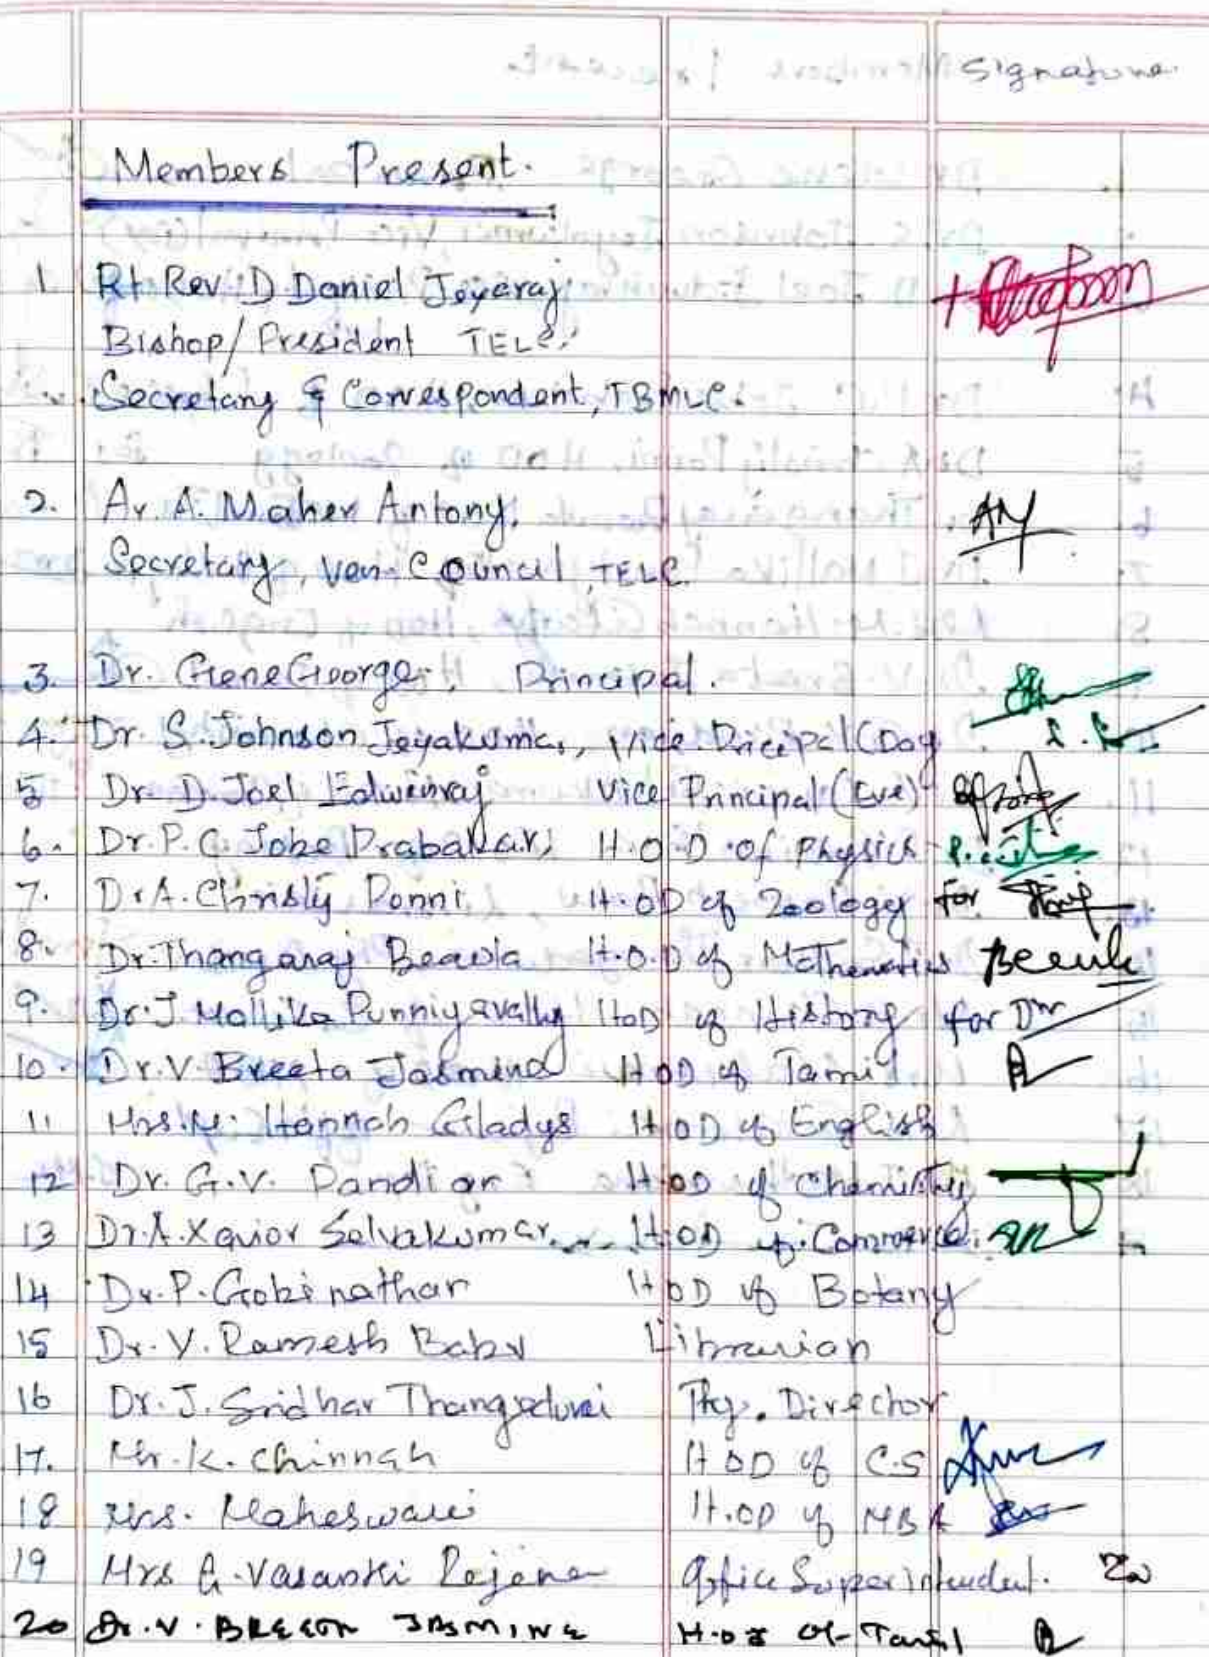 Signature
Members Present.
1. Rt. Rev. D. Daniel Jeyaraj
Bishop/President TELC.
Secretary & Correspondent, TBMLC.
2. Av. A. Maher Antony,
Secretary, Ven. Council, TELC.
3. Dr. Gene George, Principal.
4. Dr. S. Johnson Jeyakumar, Vice Pricipal (Day
5 Dr. D. Joel Edwinraj Vice Principal (Eve)
6. Dr. P. C. Jobe Prabakar, H.O.D of Physics
7. Dr A. Christy Ponni H.OD of Zoology for
8. Dr. Thangaraj Beaula H.O.D of Mathematics Beaula
9. Dr. J. Mallika Punniyavathy HoD of History for
10. Dr. V Breeta Jasmine HOD of Tamil
11 Mrs. M. Hannah Gladys HOD of English
12 Dr. G.V. Pandian HOD of Chemistry
13 Dr. A. Xavior Selvakumar HOD of Commerce
14 Dr. P. Gobinathan HOD of Botany
15 Dr. V. Ramesh Babu Librarian
16 Dr. J. Sridhar Thangadurai Phy. Director
17. Mr. K. Chinnah HOD of C.S
18 Mrs. Maheswari H.OD of MBA
19 Mrs G. Vasanthi Rejena Office Superintendent.
20 Dr. V. BREETA JASMINE H.O.D Of Tamil